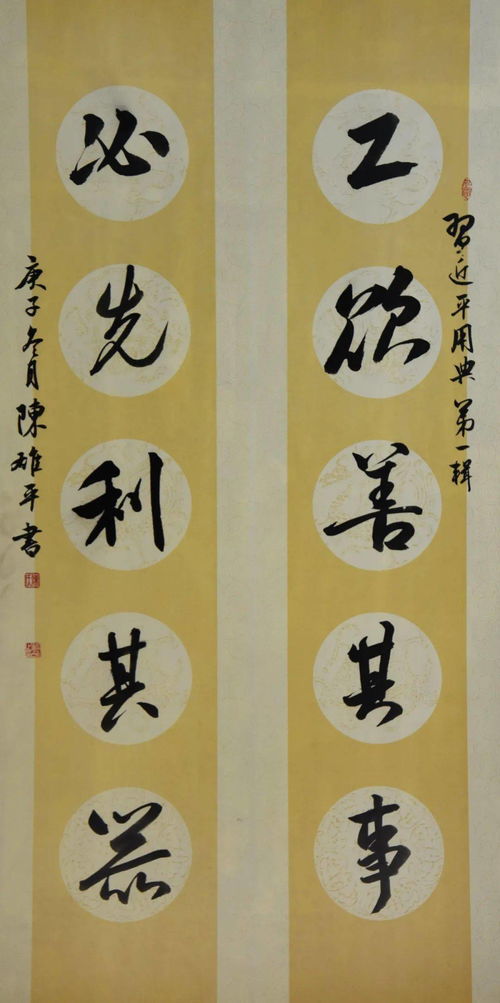 習近平用典第一輯
工欲善其事
必先利其器
庚子冬月陳雄平書